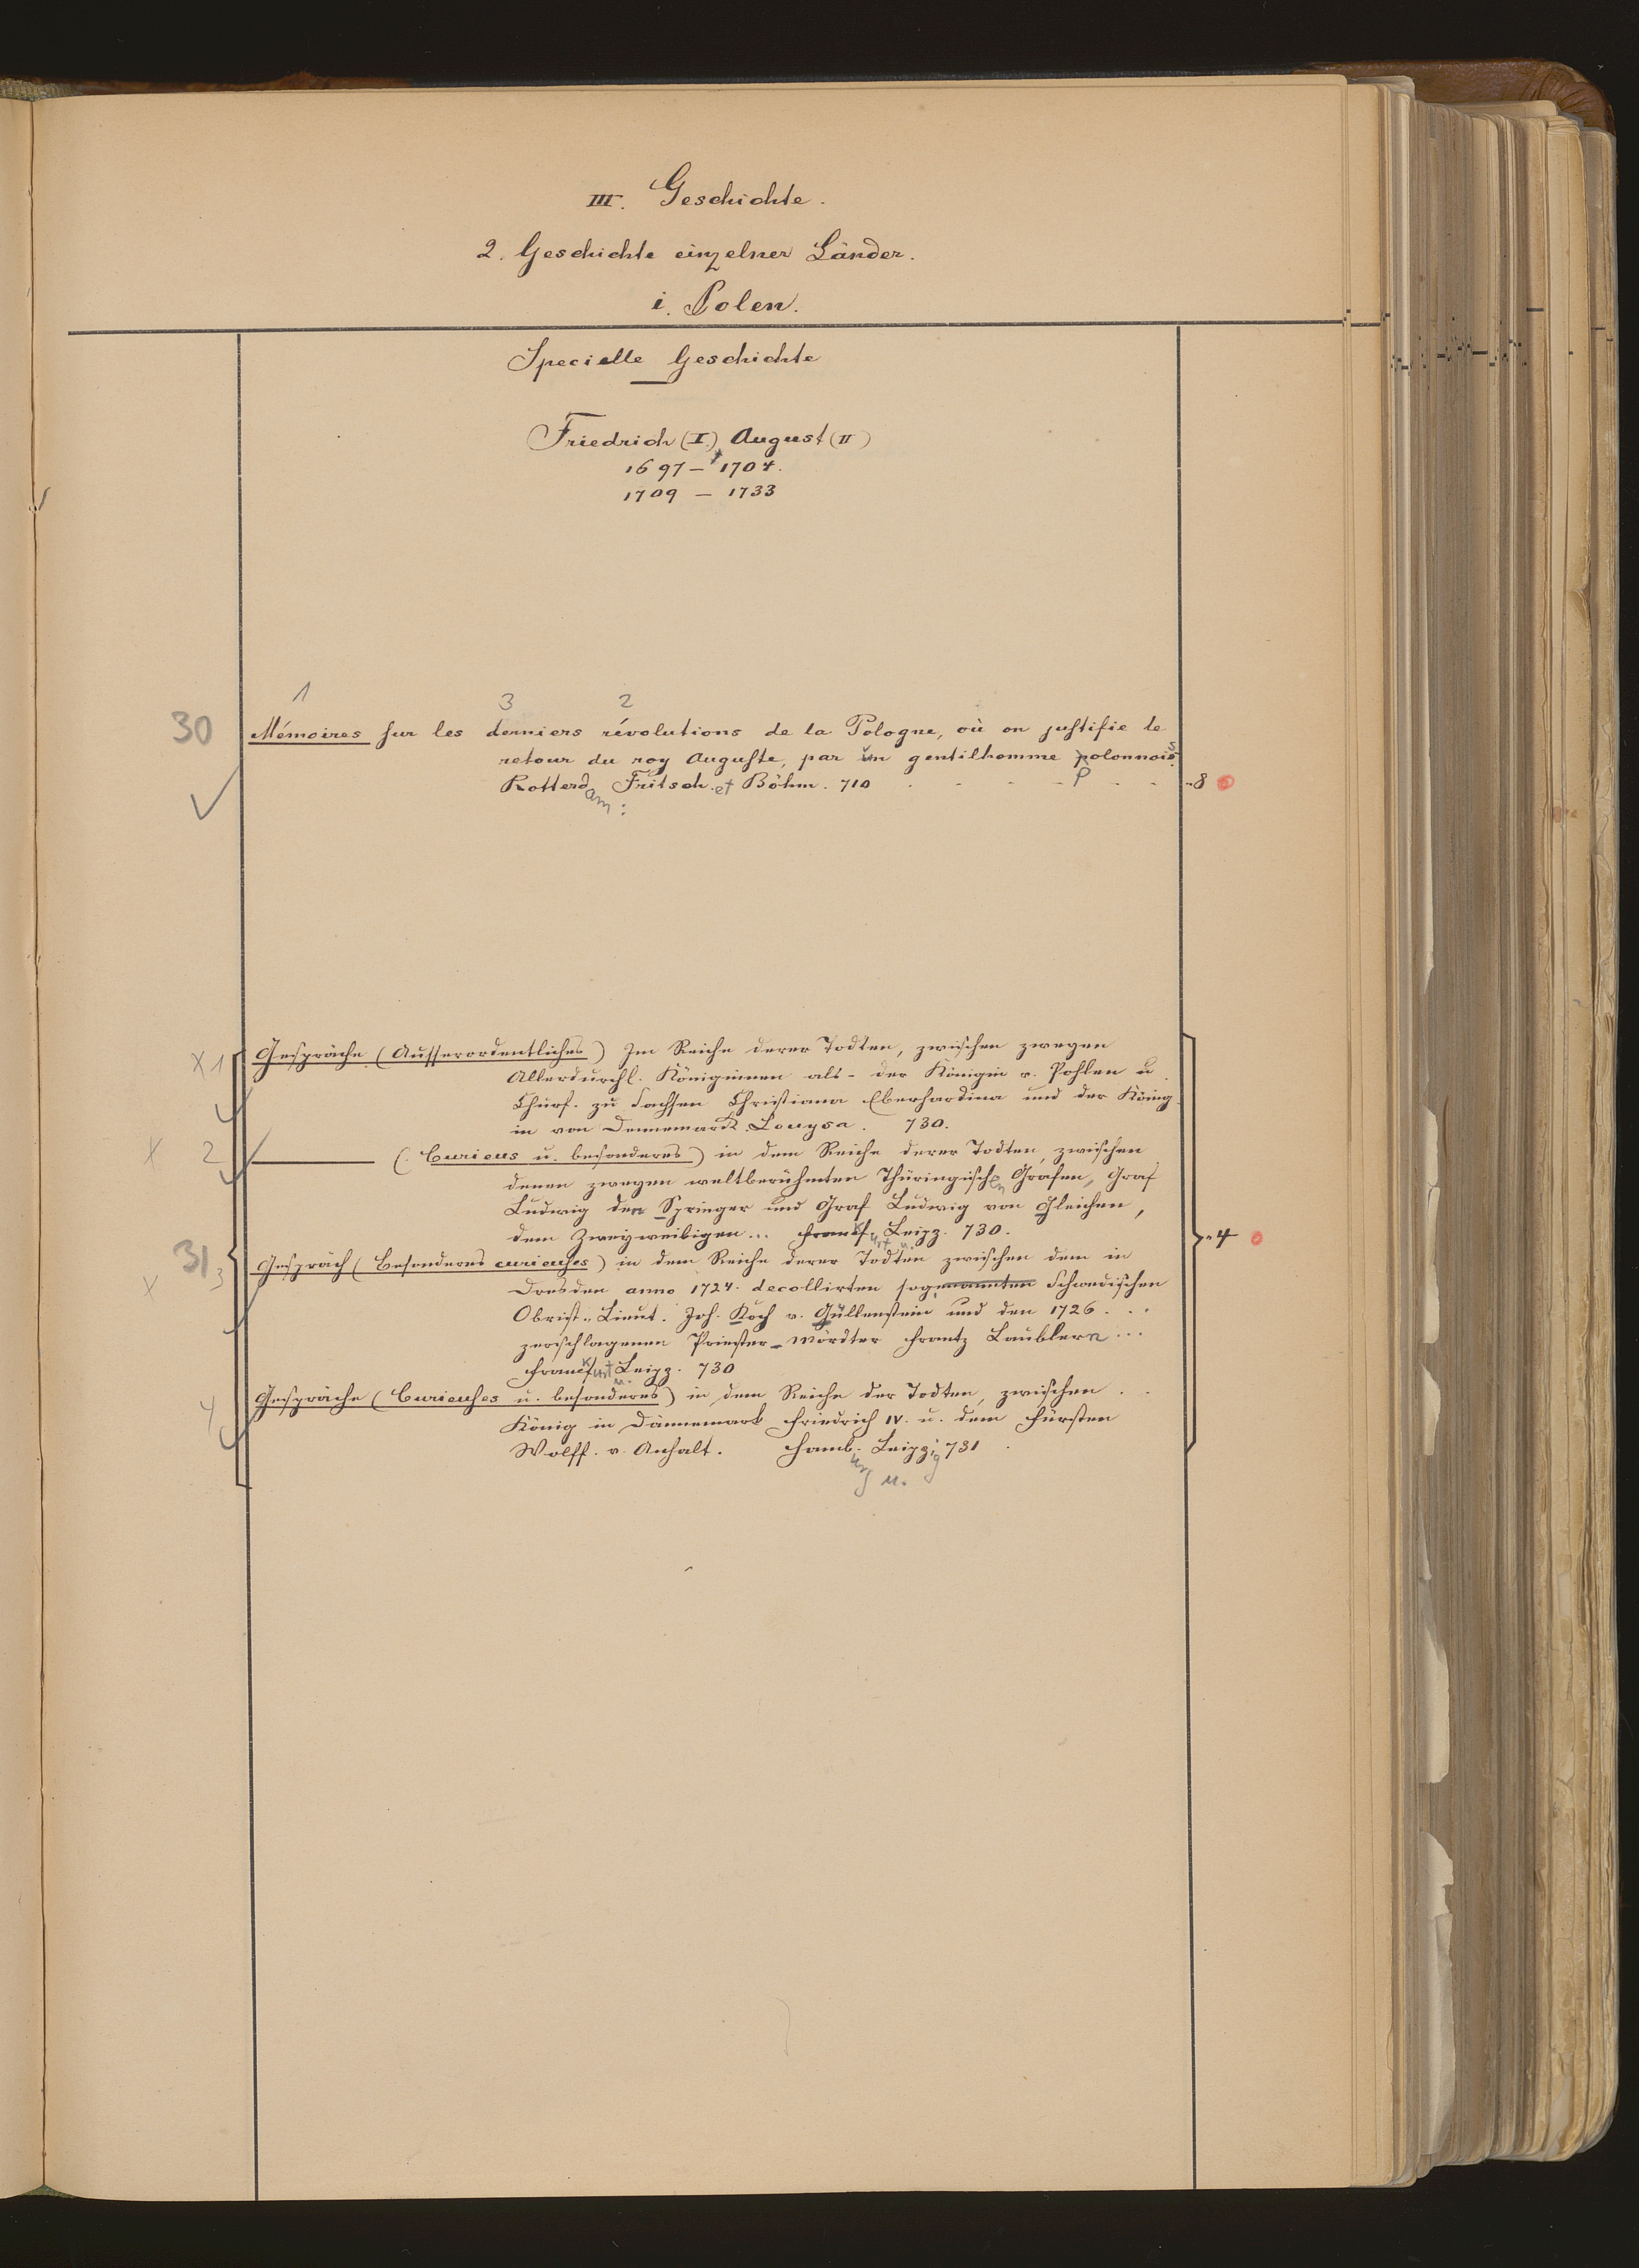 III. Geschichte.
2. Geschichte einzelner Länder.
i. Polen.
Specielle Geschichte
Friedrich (I.) August (II)
1697 – 1704.
1709 – 1733
1 3 2
30 Mémoires sur les derniers révolutions de la Pologne, où on justifie le
retour du roy Auguste, par un gentilhomme polonnois.
Rotterdam: Fritsch et Böhm. 710 P -8
X 1 Gespräche (Ausserordentliches) Im Reiche derer Todten, zwischen zweyen
Allerdurchl. Königinnen als - der Königin v. Pohlen u.
Churf. zu Sachsen Christiana Eberhardina und der König-
in von Dennemarck Louysa. 730.
X 2 (Curieus u. besonderes) in dem Reiche derer Todten, zwischen
denen zweyen weltberühmten Thüringischen Grafen, Graf
Ludwig den Springer und Graf Ludwig von Gleichen,
dem Zweyweibigen... Frankfurt u. Leipz. 730. -4
31 3 Gespräch (Besonderes curieuses) in dem Reiche derer Todten zwischen dem in
X Dresden anno 1724. decollirten sogenannten Schwedischen
Obrist-Lieut. Joh. Koch v. Gullenstein und den 1726...
zerschlagenen Priester-Mördter Frantz Laublern...
Franckfurt u. Leipz. 730
4 Gespräche (Curieuses u. besonderes) in dem Reiche der Todten, zwischen..
König in Dännemark Friedrich IV. u. dem Fürsten
Wolff. v. Anhalt. Hamburg u. Leipzig 731